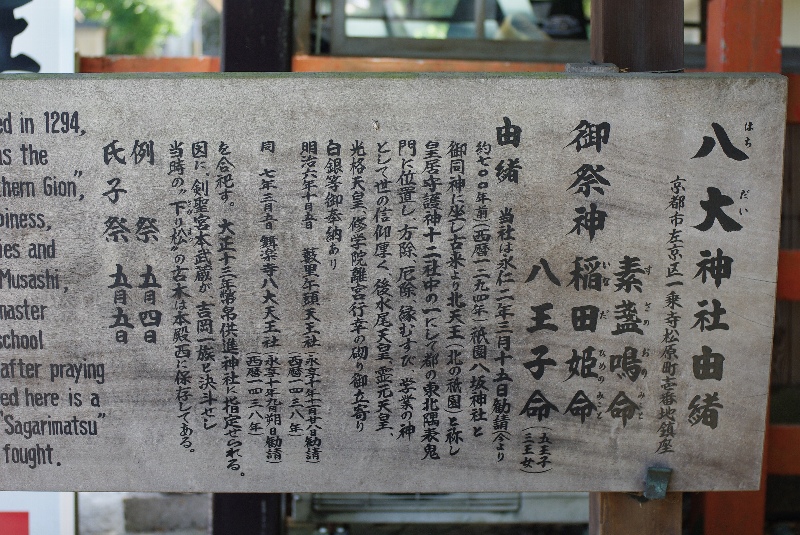 八大神社由緒
はち だい
京都市左京区一乗寺松原町壱番地鎮座
御祭神
素盞嗚命
すさのおのみこと
稲田姫命
いなだひめのみこと
八王子命
(五王子
三王女)
由緒
当社は永仁二年三月十五日勧請(今より
約七〇〇年前)(西暦一二九四年)祇園八坂神社と
御同神に坐し古来より北天王(北の祇園)と称し
皇居守護神十二社中の一にして都の東北隅表鬼
門に位置し、方除、厄除、縁むすび、学業の神
として世の信仰厚く、後水尾天皇、霊元天皇、
光格天皇、修学院離宮行幸の砌り御立寄り
白銀等御奉納あり
明治六年十月五日 藪里牛頭天王社(永享十年十一月廿八日勧請)
西暦一四三八年
同 七年三月五日 舞楽寺八大天王社(永享十年八月朔日勧請)
西暦一四三八年
を合祀す。大正十三年幣帛供進神社に指定せられる。
因に、剣聖宮本武蔵が吉岡一族と決斗せし
当時の"下り松"の古木は本殿西に保存してある。
例祭 五月四日
氏子祭 五月五日
ed in 1294,
as the
thern Gion",
piness,
ies and
Musashi,
master
school
after praying
ed here is a
"Sagarimatsu"
fought.